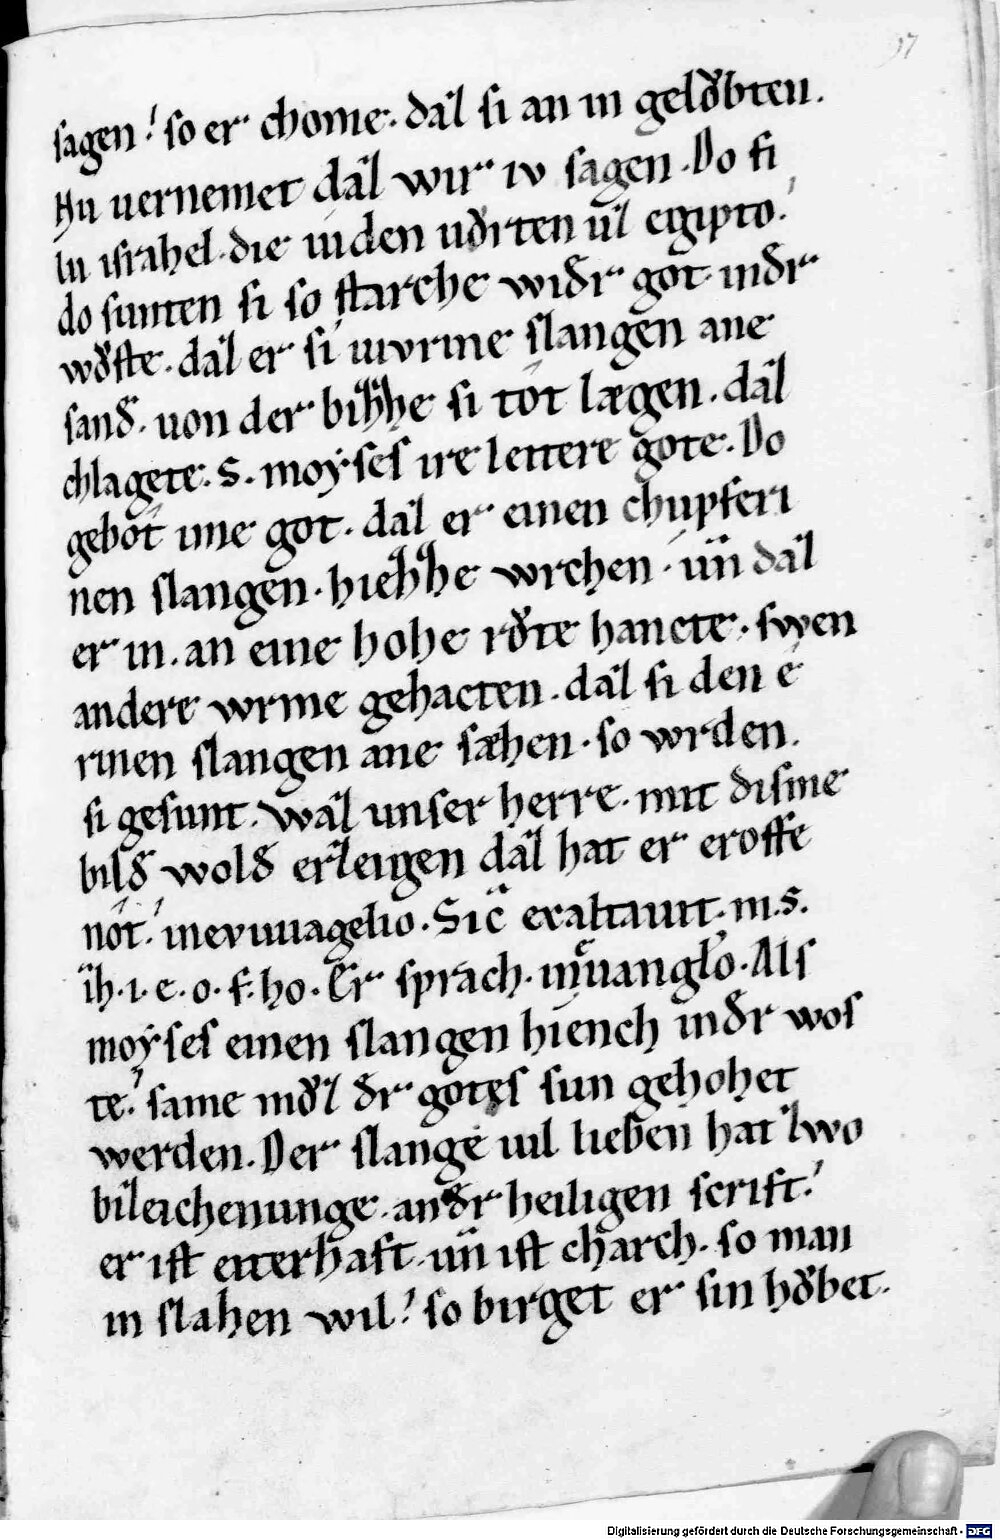 37
sagen. so er chome. daz si an in geloͮbten.
Nu uernemet daz wir iv sagen. Do si
in israhel. die iuden uͦrten uz egipto.
do sunten si so starche widr got. indr
woͮste. daz er si wrme slangen ane
sand. uon der bizzhe si tôt lægen. daz
chlagete. S. moyses ire leitere gote. Do
gebôt ime got. daz er einen chupferi
nen slangen. hiezzhe wrchen. un̄ daz
er in. an eine hohe roͮte hancte. swen
andere wrme gehacten. daz si den e
rinen slangen ane sæhen. so wrden.
si gesunt. waz unser herre. mit disme
bild wold erzeigen daz hat er eroffe
nôt. inevuuagelio. Sic̄ exaltauit. m. s.
ih. i. e. o. f. ho. Er sprach. in euanglo. Als
moyses einen slangen hiench indr wos
te. same muͦz dr gotes sun gehohet
werden. Der slange uil lieben hat zwo
bizeichenunge. andr heiligen scrift.
er ist eiterhaft. un̄ ist charch. so man
in slahen wil. so birget er sin hoͮbet.
Digitalisierung gefördert durch die Deutsche Forschungsgemeinschaft - DFG